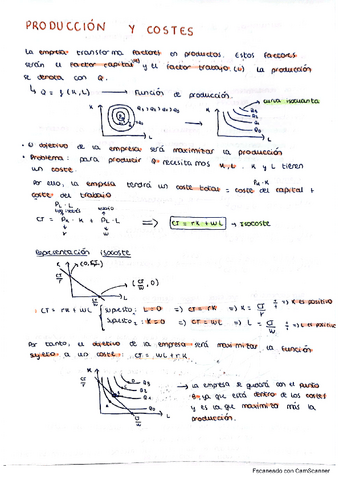 PRODUCCIÓN Y COSTES
La empresa transforma factores en productos. Estos factores
serán el factor capital (K) y el factor trabajo (L). La producción
se denota con Q.
↳ Q = f(K,L) → Función de producción.
curva isocuanta
K
L
K
Q3
Q2
Q1
Q0
L
• El objetivo de la empresa será maximizar la producción
• Problema: para producir Q necesitamos K, L. K y L tienen
un coste.
Por ello, la empresa tendrá un coste total = coste del capital +
coste del trabajo
PK·K
PL·L
CT = PK·K + PL·L ⟹ CT = rK + wL → isocoste
r w
Representación isocoste
K
(0, CT/r)
CT/r
(CT/w, 0)
CT/w
L
CT = rK + wL
supuesto1: L=0 ⇒ CT = rK ⇒ K = CT/r ⇒ K es positivo
supuesto2: K=0 ⇒ CT = wL ⇒ L = CT/w ⇒ L es positivo
Por tanto, el objetivo de la empresa será maximizar la función
sujeta a un coste: CT = wL + rK.
K
CT/r
Q3
Q2
Q1
Q0
CT/w
L
→ La empresa se guiará con el punto
ya que está dentro de los costes
y es la que maximiza más la
producción.
Escaneado con CamScanner